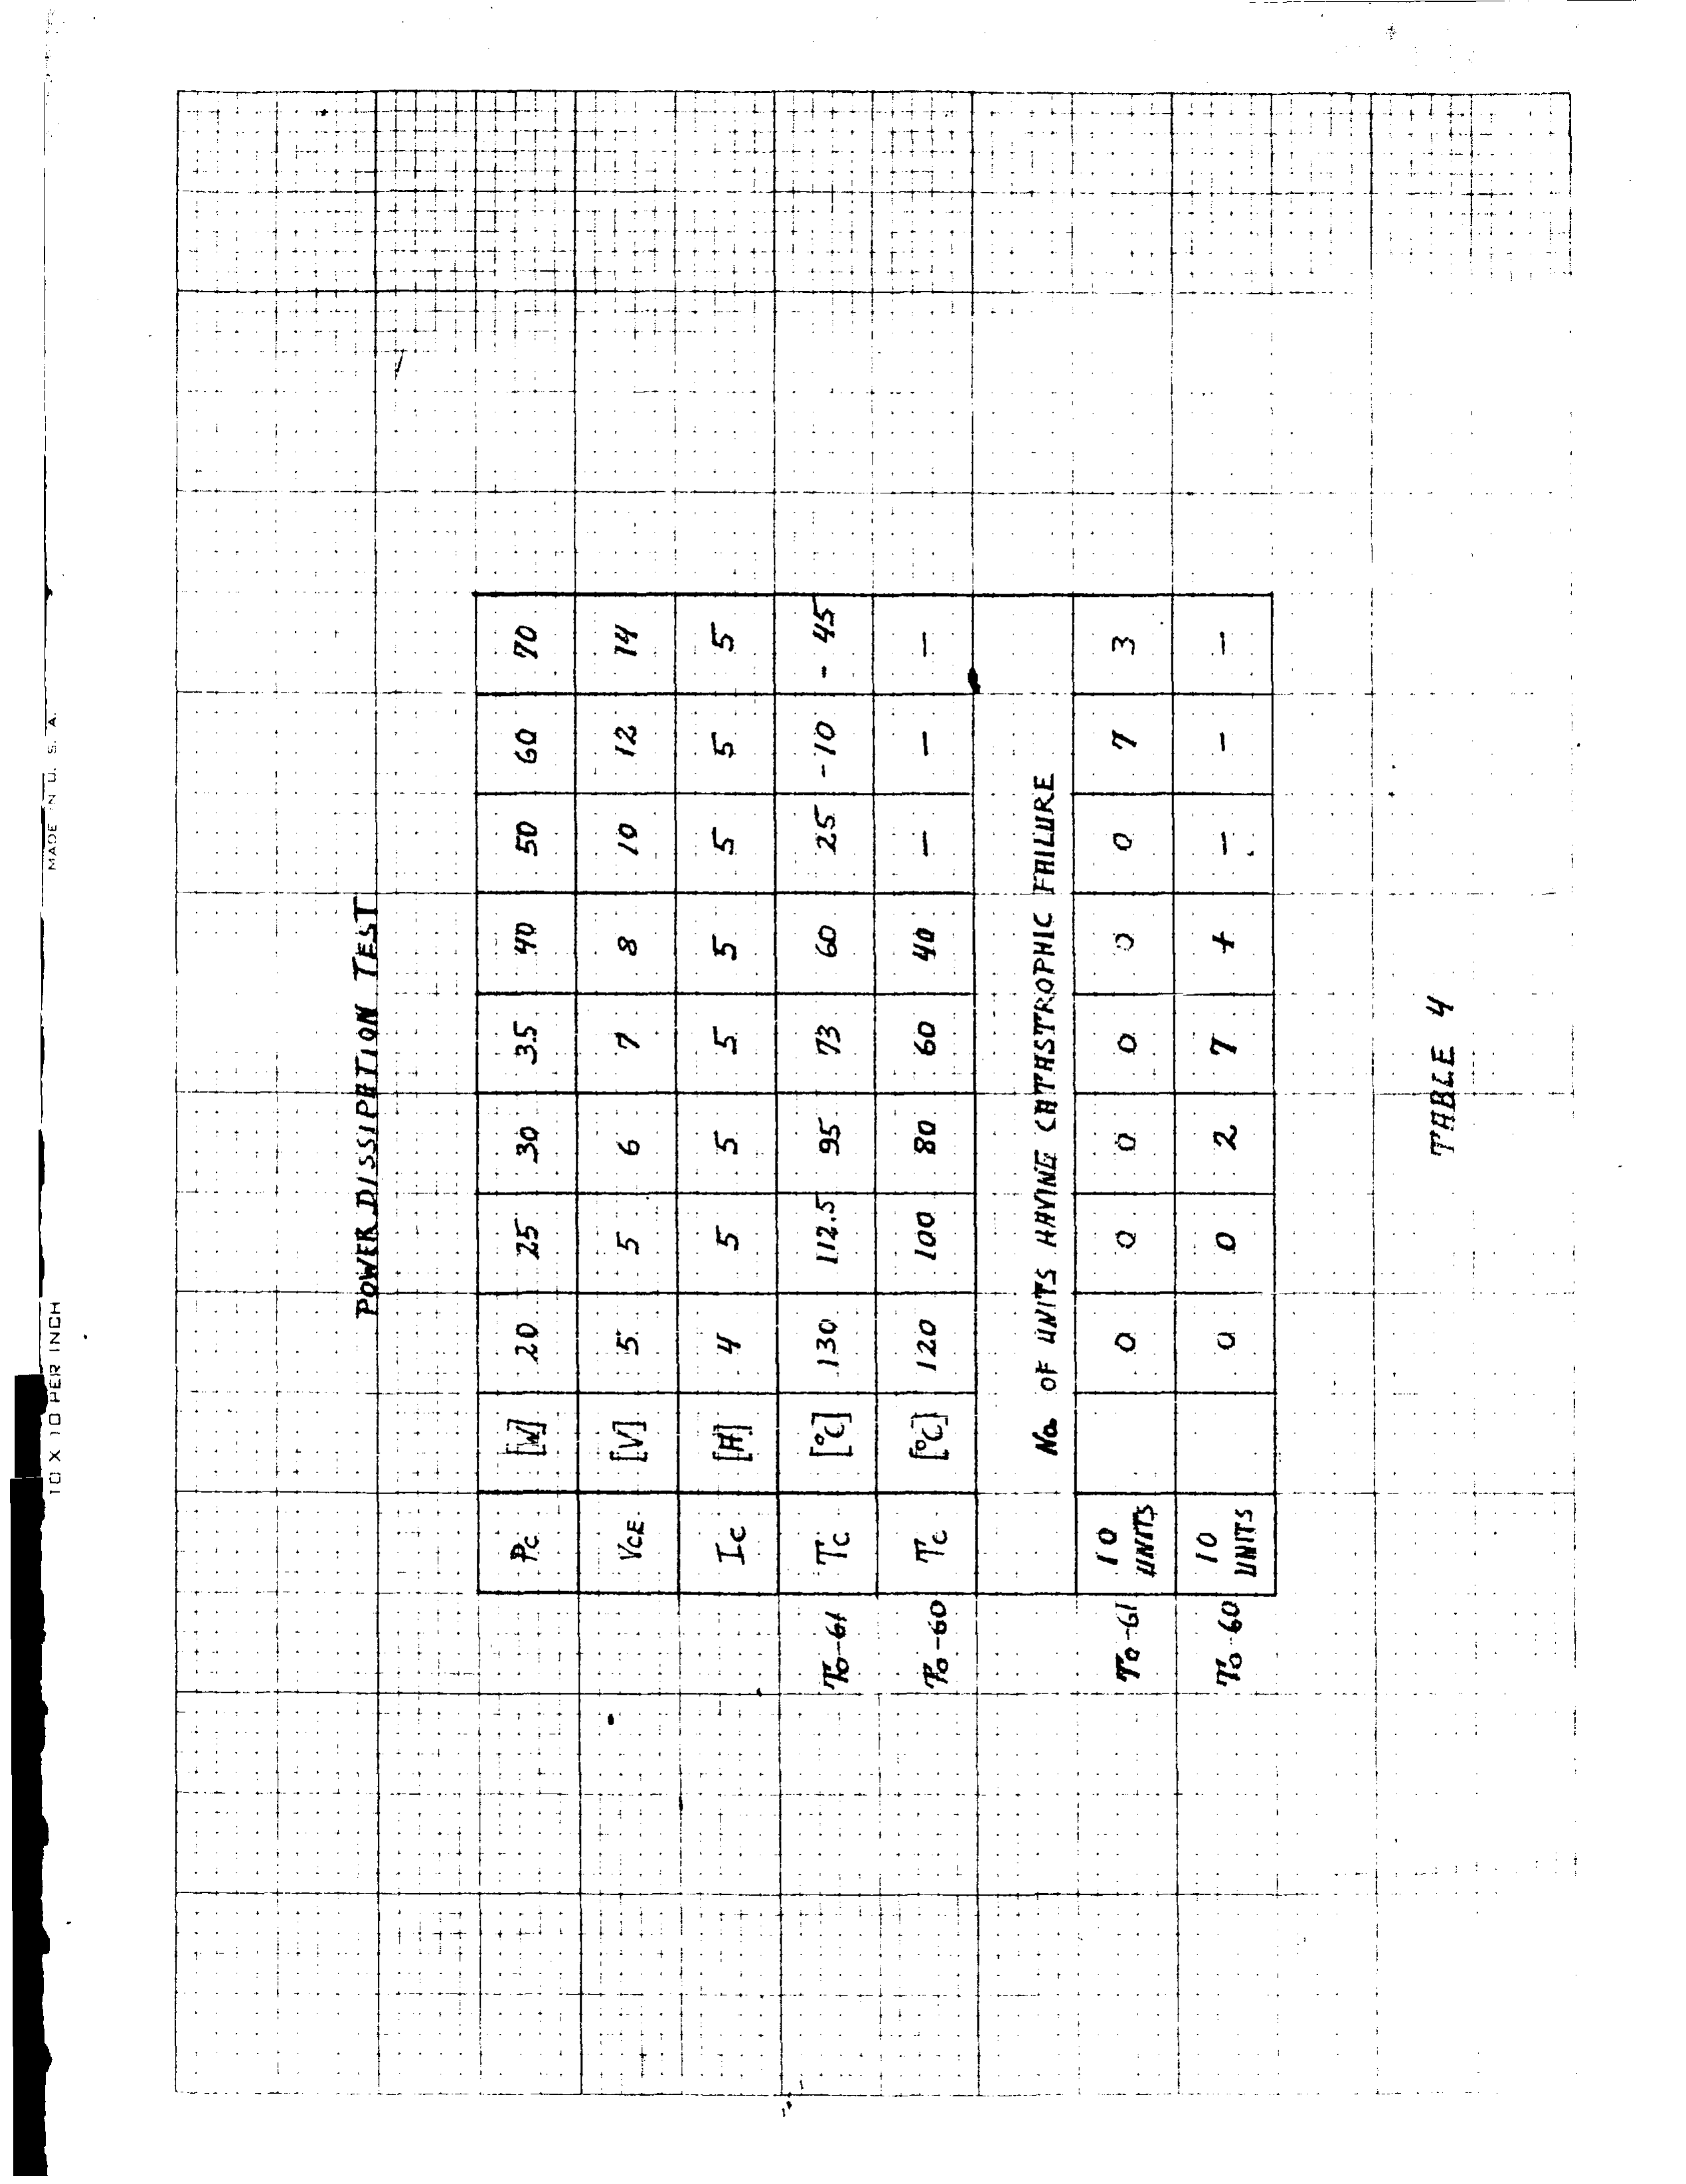 10 X 10 PER INCH MADE IN U. S. A.
POWER DISSIPATION TEST
Pc [W] 20 25 30 35 40 50 60 70
VCE [V] 5 5 6 7 8 10 12 14
Ic [A] 4 5 5 5 5 5 5 5
To-61 Tc [°C] 130 112.5 95 73 60 25 -10 -45
To-60 Tc [°C] 120 100 80 60 40 - - -
No. OF UNITS HAVING CATASTROPHIC FAILURE
To-61 10 UNITS 0 0 0 0 0 0 7 3
To-60 10 UNITS 0 0 2 7 + - - -
TABLE 4